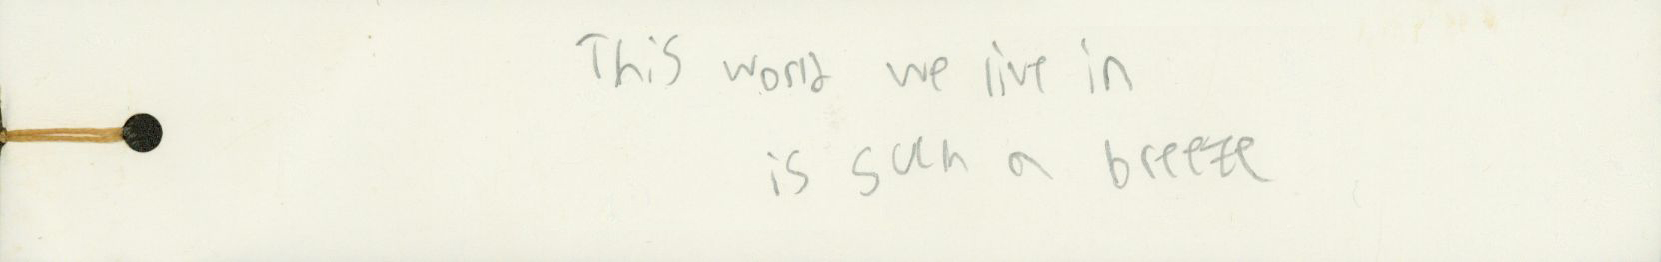 This world we live in
is such a breeze